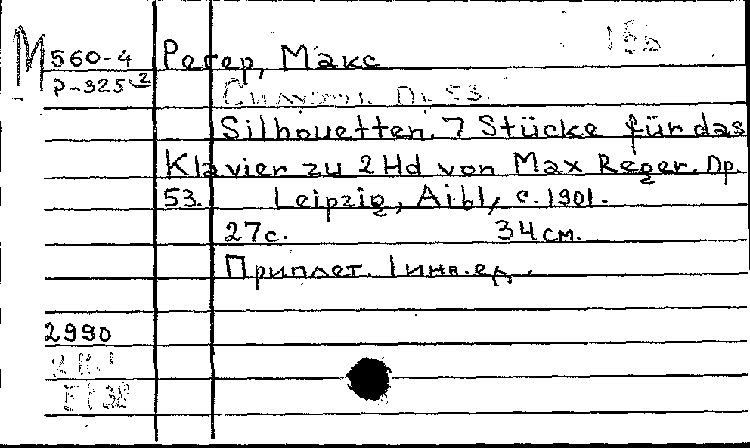 М 560-4 Регер, Макс
Р-325²
Силуэты. Op. 53.
Silhouetten. 7 Stücke für das
Klavier zu 2 Hd von Max Reger. Op.
53. Leipzig, Aibl, c. 1901.
27с. 34 см.
Приплет. 1 инв.ед.
2990